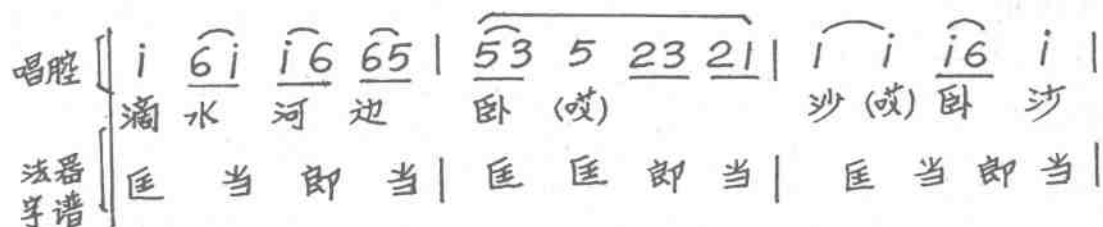 唱腔 i 6i i6 65 | 53 5 23 21 | i i i6 i |
滴 水 河 边 卧 (哎) 沙 (哎) 卧 沙
法器字谱 匡 当 郎 当 | 匡 匡 郎 当 | 匡 当 郎 当 |